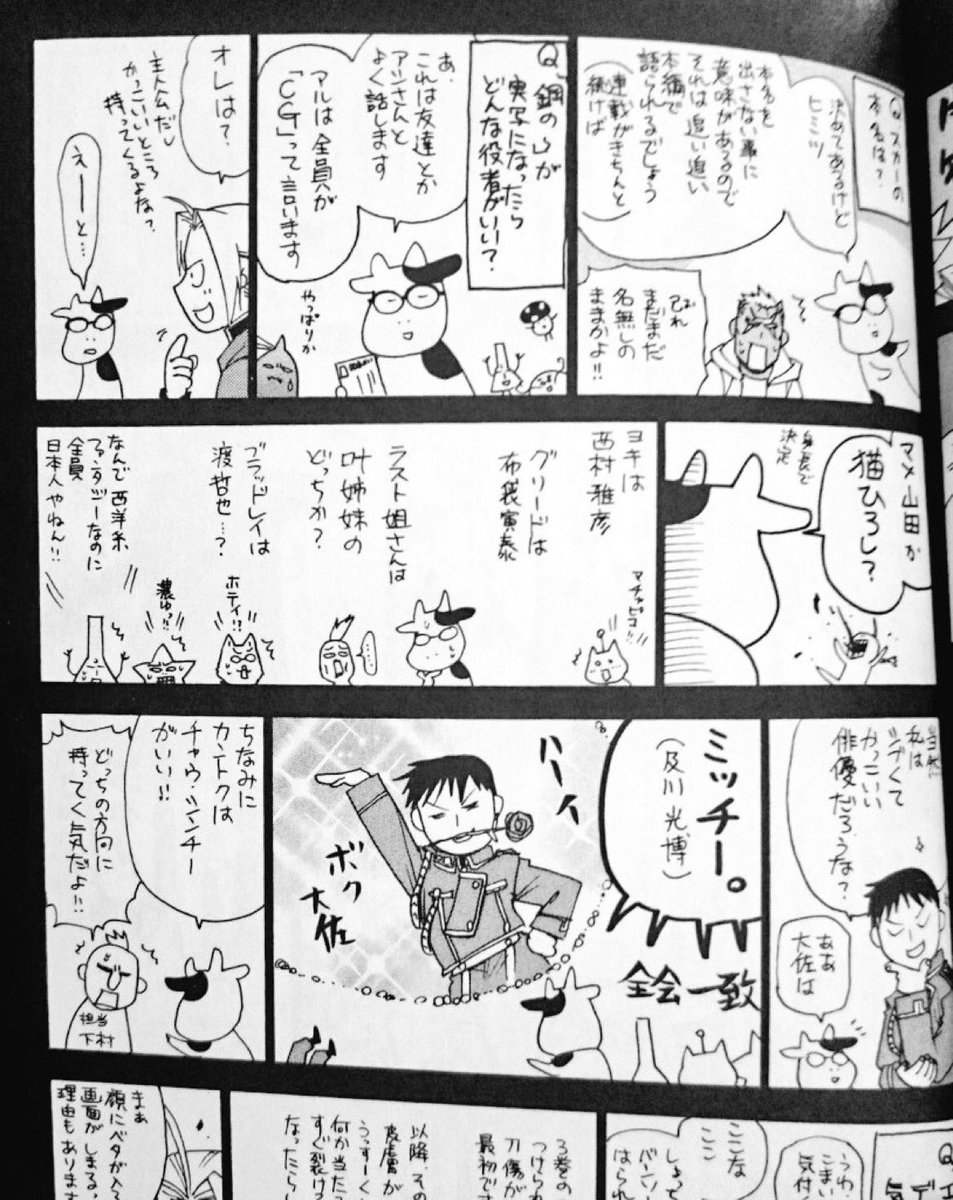 Q.スカーの
本名は？
決めてあるけど
ヒミツ
本名を
出さない事に
意味があるので
それは追い追い
本編で
語られるでしょう
連載がきちんと
続けば
おれ
まだまだ
名無しの
ままかよ!!
Q.鋼の山が
実写になったら
どんな役者がいい？
あ、
これは友達とか
アシさんと
よく話します
アルは全員が
「CG」って言います
やっぱりか
オレは？
主人公だし
かっこいいところ
持ってくるよな？
えーーと…
マメ山田か
猫ひろし？
身長で
決定
ヨキは
西村雅彦
マチャピコ!!
グリードは
布袋寅泰
ラスト姐さんは
叶姉妹の
どっちか？
……
ブラッドレイは
渡哲也…？
ホテイ!?
濃ゆっ!!
なんで西洋系
ファンタジーなのに
全員
日本人やねん!!
当然
私は
シブくて
かっこいい
俳優だろうな？
ああ
大佐は
ミッチー。
（及川光博）
全会一致
ハーイ
ボク
大佐
ちなみに
カントクは
チャウ・シンチー
がいい!!
どっちの方向に
持ってく気だよ!!
担当
下村
Q
うわ
こま
気付
ここな
ここ
しょっ
バンソ
はられ
3巻の
つけられ
刀傷が
最初です
以降、その
皮膚が
うっすーく
何か当たっ
すぐ裂ける
なったらし
まあ
顔にベタが入る
画面がしまる、
理由もあります